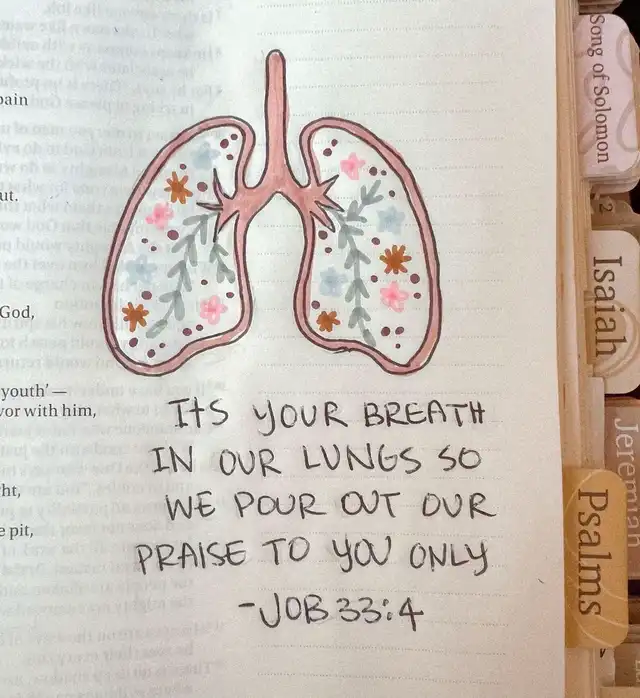 pain
ut.
God,
youth' —
vor with him,
ht,
e pit,
ItS YOUR BREATH
IN OUR LUNGS SO
WE POUR OUT OUR
PRAISE TO YOU ONLY
-JOB 33:4
Song of Solomon
Isaiah
Jeremiah
Psalms